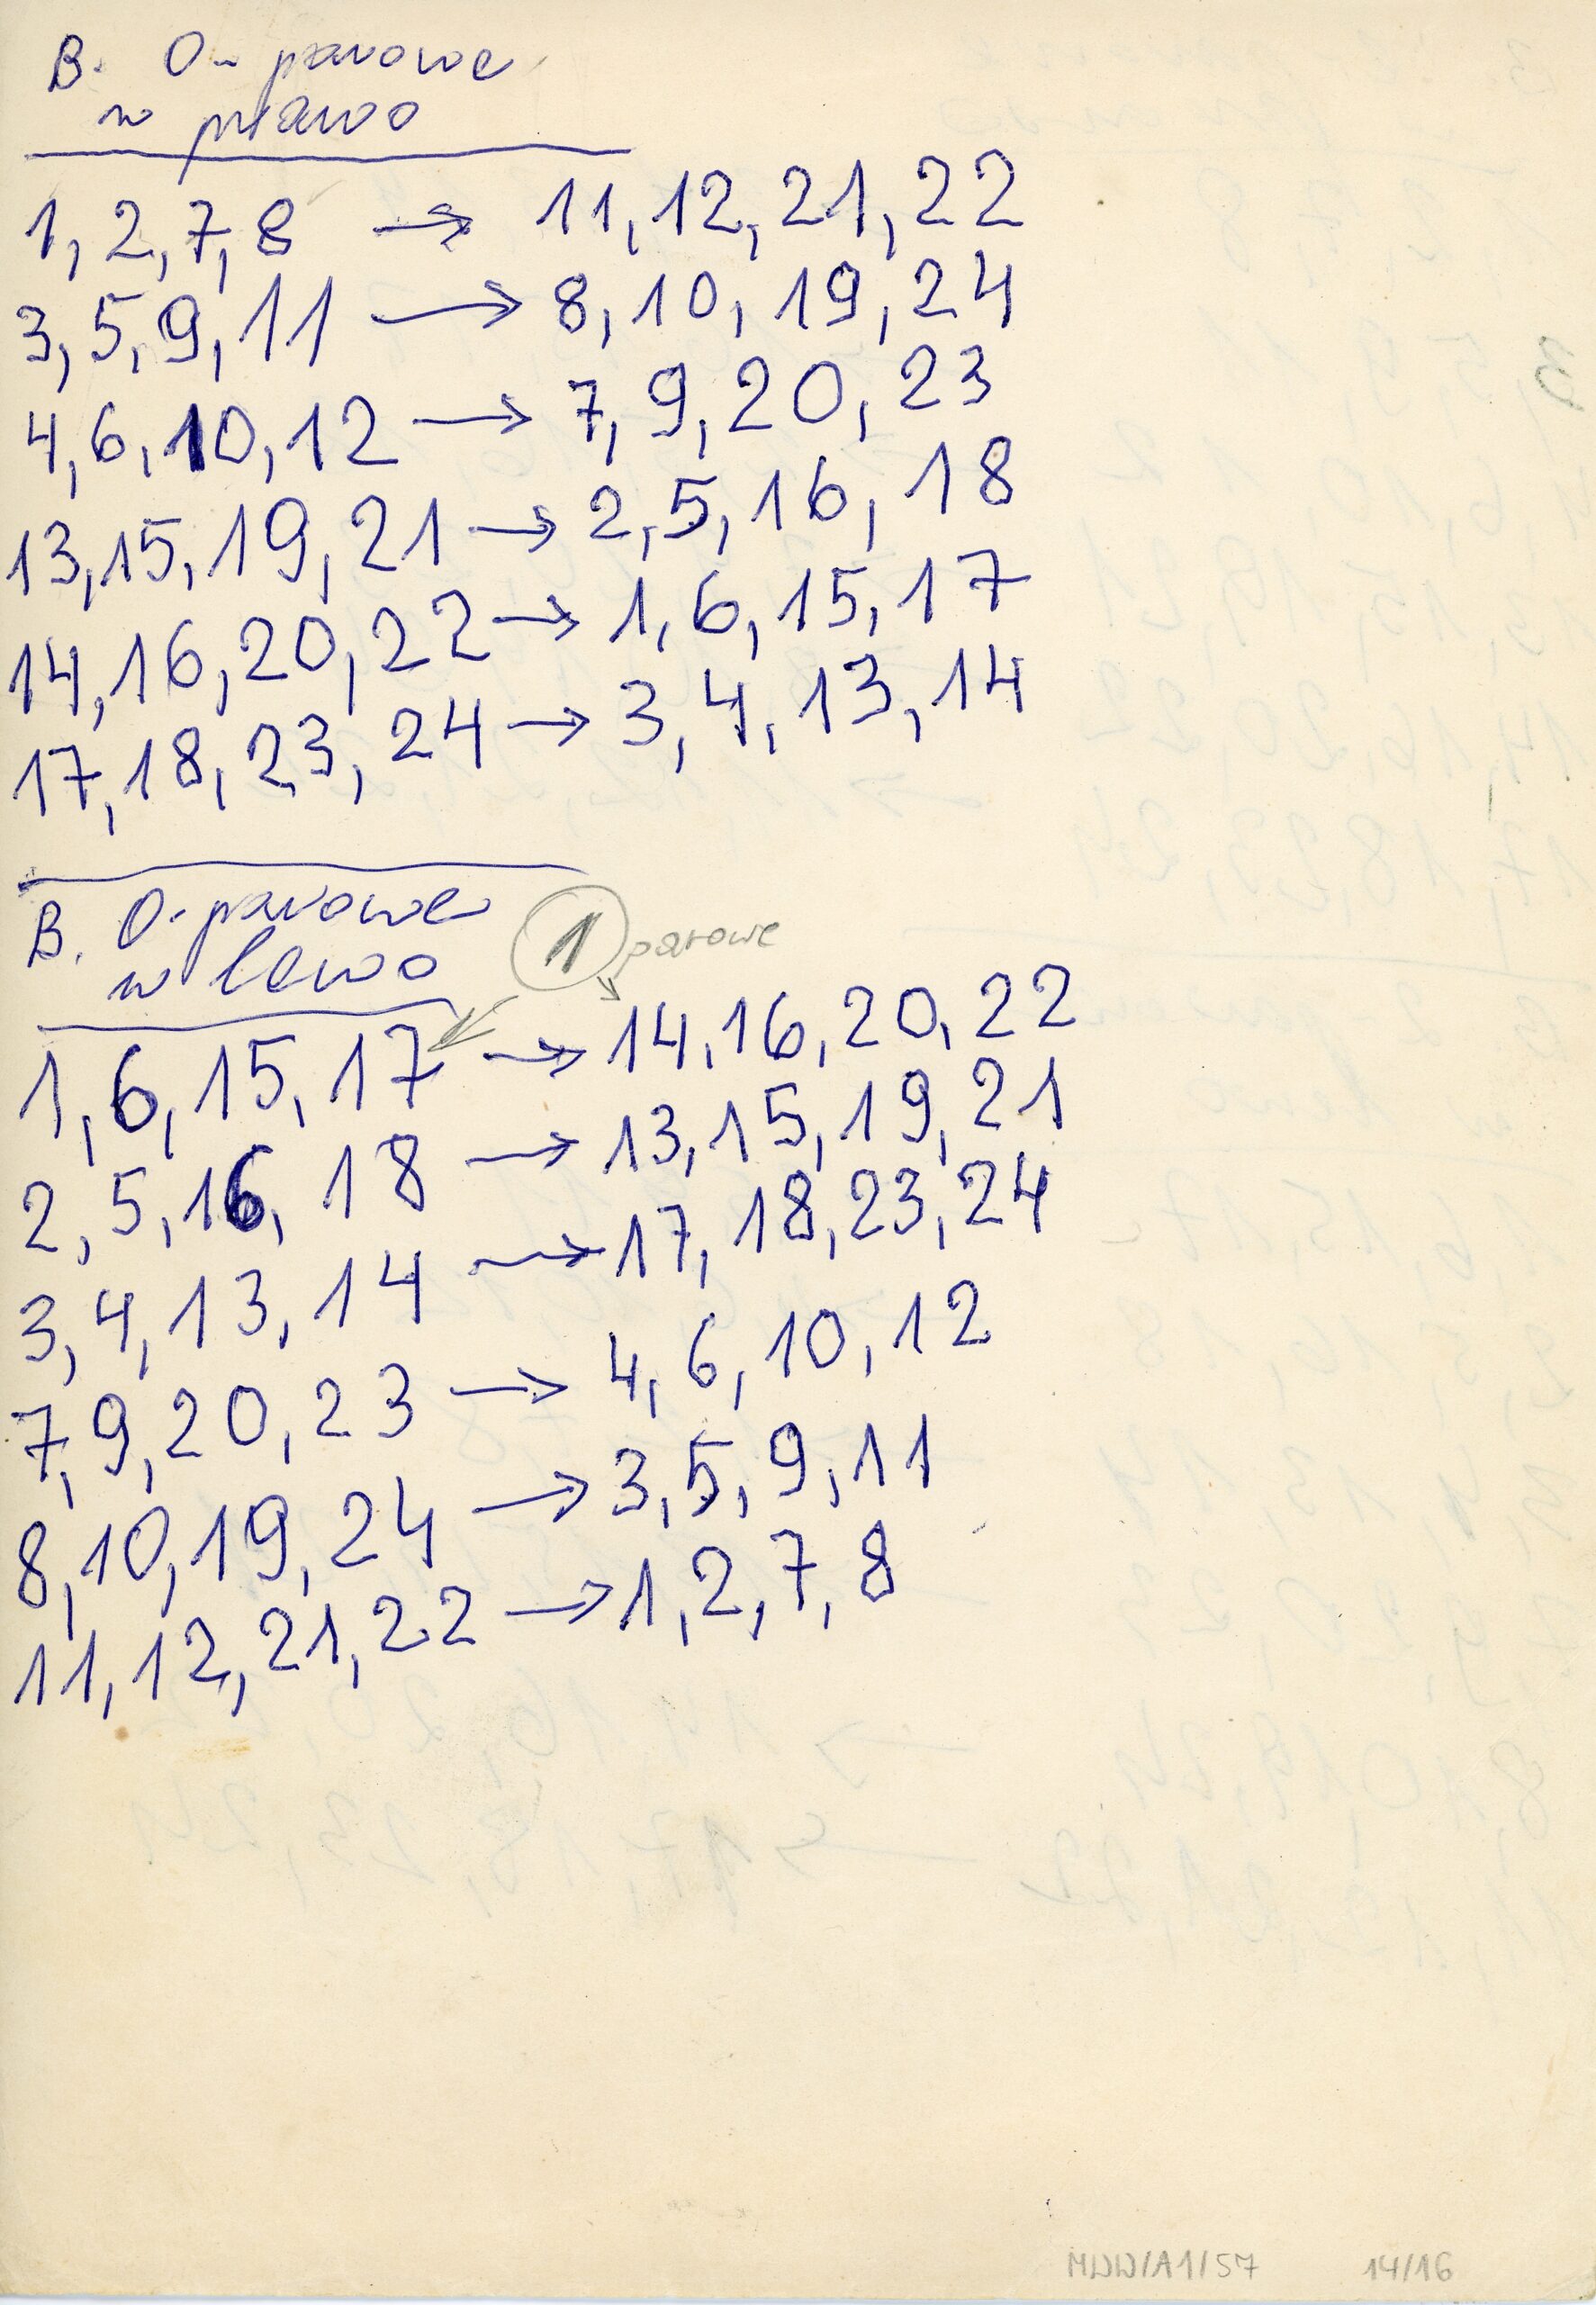 B. 0-parowe
w prawo
1, 2, 7, 8 → 11, 12, 21, 22
3, 5, 9, 11 → 8, 10, 19, 24
4, 6, 10, 12 → 7, 9, 20, 23
13, 15, 19, 21 → 2, 5, 16, 18
14, 16, 20, 22 → 1, 6, 15, 17
17, 18, 23, 24 → 3, 4, 13, 14
B. 0-parowe
w lewo
1 parowe
1, 6, 15, 17 → 14, 16, 20, 22
2, 5, 16, 18 → 13, 15, 19, 21
3, 4, 13, 14 → 17, 18, 23, 24
7, 9, 20, 23 → 4, 6, 10, 12
8, 10, 19, 24 → 3, 5, 9, 11
11, 12, 21, 22 → 1, 2, 7, 8
MWW/A1/57 14/16